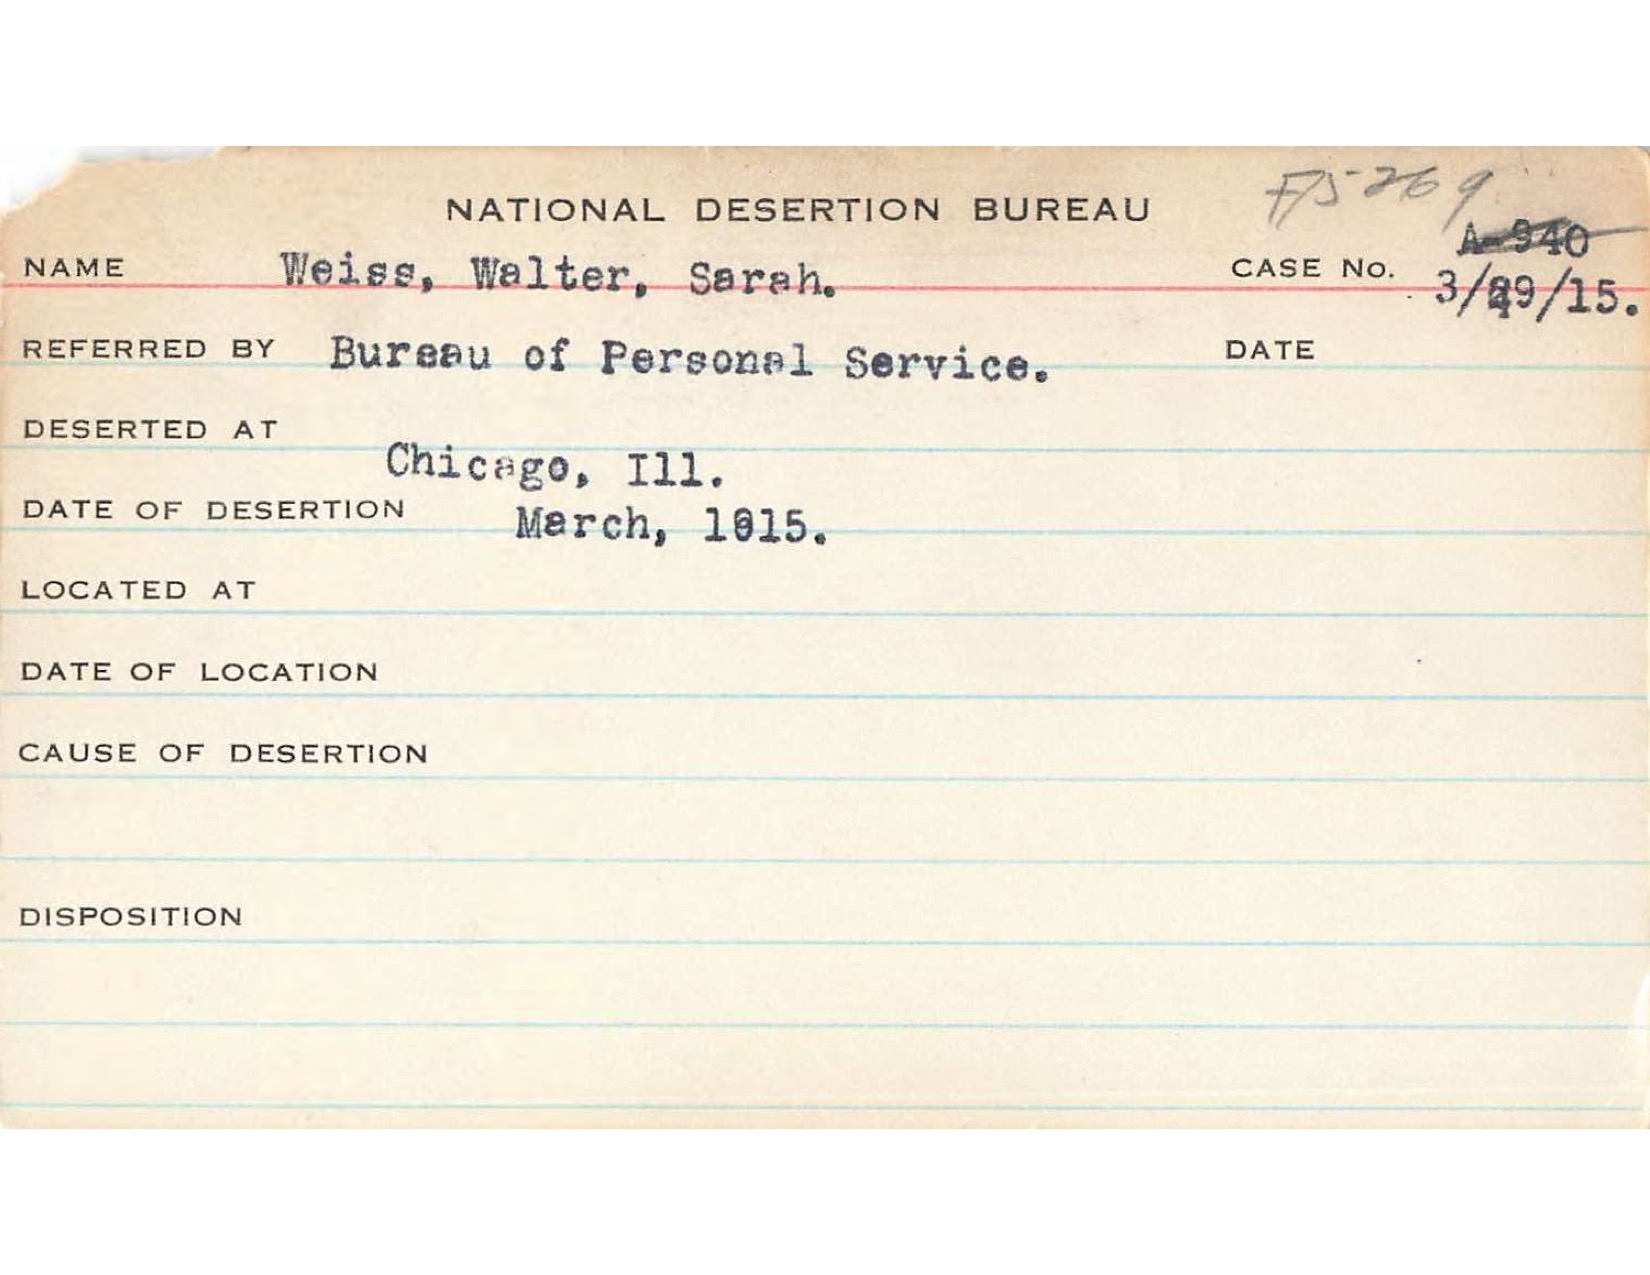 F/5269
NATIONAL DESERTION BUREAU
A-940
NAME Weiss, Walter, Sarah. CASE No.
3/29/15.
REFERRED BY Bureau of Personal Service. DATE
DESERTED AT
Chicago, Ill.
DATE OF DESERTION March, 1915.
LOCATED AT
DATE OF LOCATION
CAUSE OF DESERTION
DISPOSITION